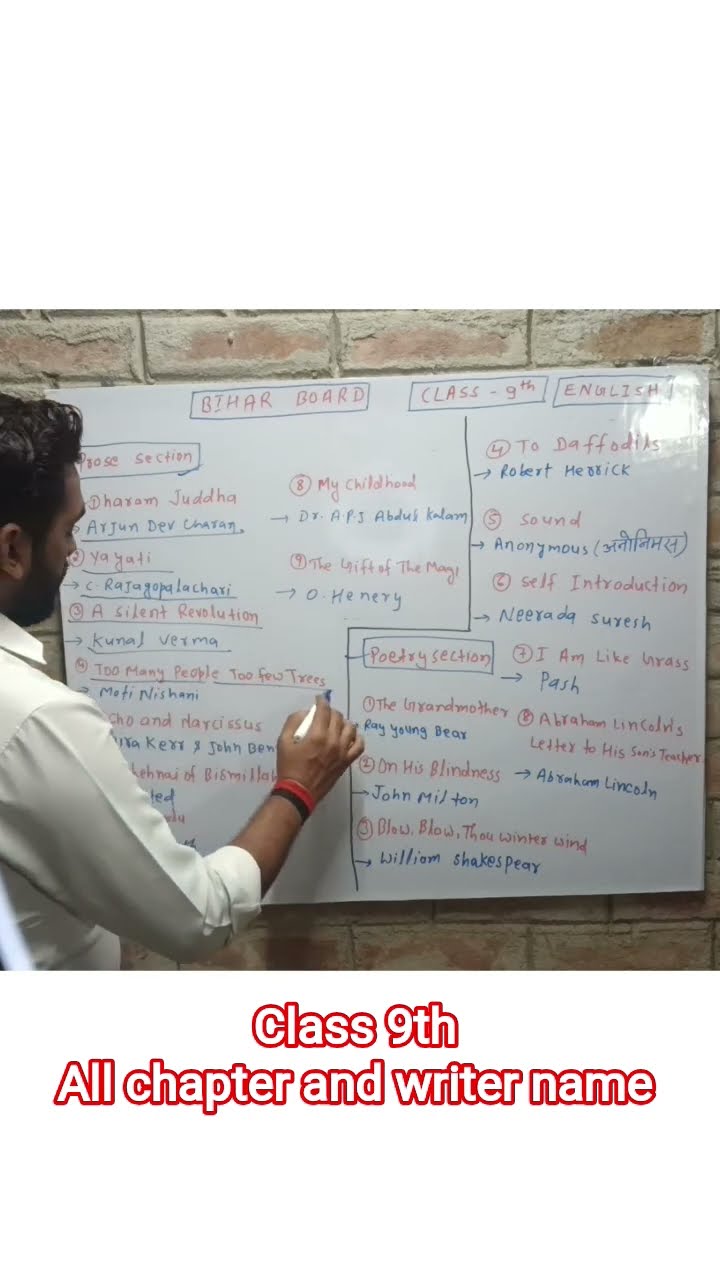 BIHAR BOARD
CLASS - 9th
ENGLISH
Prose section
Dharam Juddha
Arjun Dev Charan
② Yayati
→ C. Rajagopalachari
③ A Silent Revolution
→ Kunal Verma
④ Too Many People Too few Trees
→ Moti Nishani
cho and Narcissus
ra Kerr & John Ben
kehnai of Bismillah
ted
⑧ My Childhood
→ Dr. A.P.J Abdul Kalam
⑨ The Gift of The Magi
→ O. Henery
Poetry section
① The Grandmother
Ray young Bear
② On His Blindness
→ John Milton
③ Blow, Blow, Thou winter wind
→ William Shakespear
④ To Daffodils
→ Robert Herrick
⑤ Sound
→ Anonymous (अनोनिमस)
⑥ Self Introduction
→ Neerada Suresh
⑦ I Am Like Grass
→ Pash
⑧ Abraham Lincoln's
Letter to His Son's Teacher
→ Abraham Lincoln
Class 9th
All chapter and writer name